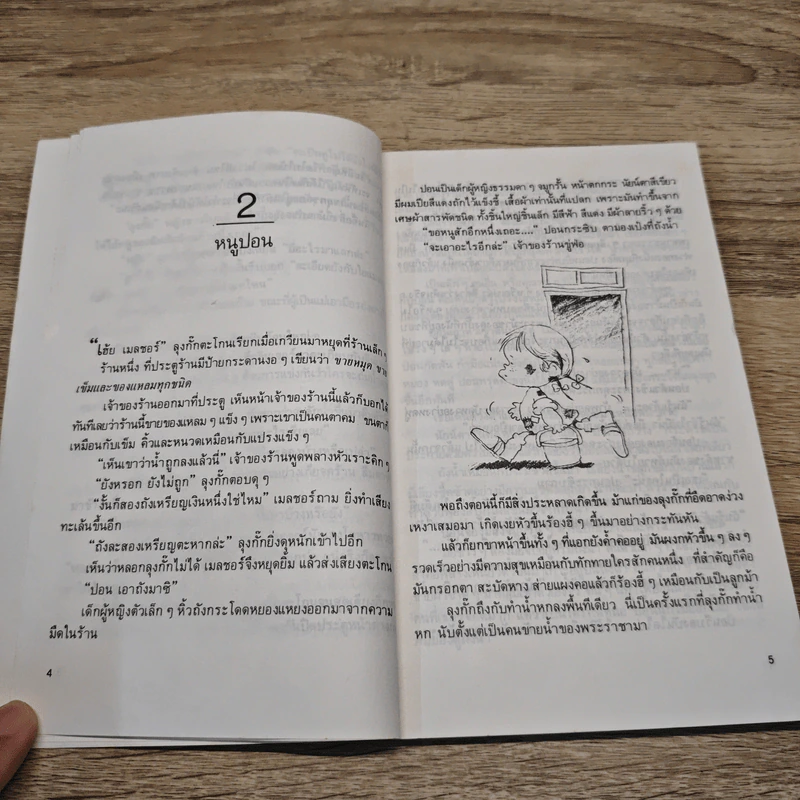 2
หนูปอน
“เฮ้ย เมลชอร์” ลุงกั๊กตะโกนเรียกเมื่อเกวียนมาหยุดที่ร้านเล็ก ๆ
ร้านหนึ่ง ที่ประตูร้านมีป้ายกระดานงอ ๆ เขียนว่า ขายหมุด ขาย
เข็มและของแหลมทุกชนิด
เจ้าของร้านออกมาที่ประตู เห็นหน้าเจ้าของร้านนี้แล้วก็บอกได้
ทันทีเลยว่าร้านนี้ขายของแหลม ๆ แข็ง ๆ เพราะเขาเป็นคนตาคม ขนตาก็
เหมือนกับเข็ม คิ้วและหนวดเหมือนกับแปรงแข็ง ๆ
“เห็นเขาว่าน้ำถูกลงแล้วนี่” เจ้าของร้านพูดพลางหัวเราะคิก ๆ
“ยังหรอก ยังไม่ถูก” ลุงกั๊กตอบดุ ๆ
“งั้นก็สองถังเหรียญเงินหนึ่งใช่ไหม” เมลชอร์ถาม ยิ่งทำเสียง
ทะเล้นขึ้นอีก
“ถังละสองเหรียญตะหากล่ะ” ลุงกั๊กยิ่งดุหนักเข้าไปอีก
เห็นว่าหลอกลุงกั๊กไม่ได้ เมลชอร์จึงหยุดยิ้ม แล้วส่งเสียงตะโกน
“ปอน เอาถังมาซิ”
เด็กผู้หญิงตัวเล็ก ๆ หิ้วถังกระโดดหยองแหยงออกมาจากความ
มืดในร้าน
4
ปอนเป็นเด็กผู้หญิงธรรมดา ๆ จมูกรั้น หน้าตกกระ นัยน์ตาสีเขียว
มีผมเปียสีแดงถักไว้แข็งชี้ เสื้อผ้าเท่านั้นที่แปลก เพราะมันทำขึ้นจาก
เศษผ้าสารพัดชนิด ทั้งชิ้นใหญ่ชิ้นเล็ก มีสีฟ้า สีแดง มีผ้าลายริ้ว ๆ ด้วย
“ขอหนูสักอึกหนึ่งเถอะ....” ปอนกระซิบ ตามองเป๋งที่ถังน้ำ
“จะเอาอะไรอีกล่ะ” เจ้าของร้านขู่ฟ่อ
พอถึงตอนนี้ก็มีสิ่งประหลาดเกิดขึ้น ม้าแก่ของลุงกั๊กที่อืดอาดง่วง
เหงาเสมอมา เกิดเงยหัวขึ้นร้องฮี้ ๆ ขึ้นมาอย่างกระทันหัน
แล้วก็ยกขาหน้าขึ้นทั้ง ๆ ที่แอกยังค้ำคออยู่ มันผงกหัวขึ้น ๆ ลง ๆ
รวดเร็วอย่างมีความสุขเหมือนกับทักทายใครสักคนหนึ่ง ที่สำคัญก็คือ
มันกรอกตา สะบัดหาง ส่ายแผงคอแล้วก็ร้องฮี้ ๆ เหมือนกับเป็นลูกม้า
ลุงกั๊กถึงกับทำน้ำหกลงพื้นทีเดียว นี่เป็นครั้งแรกที่ลุงกั๊กทำน้ำ
หก นับตั้งแต่เป็นคนขายน้ำของพระราชามา
5